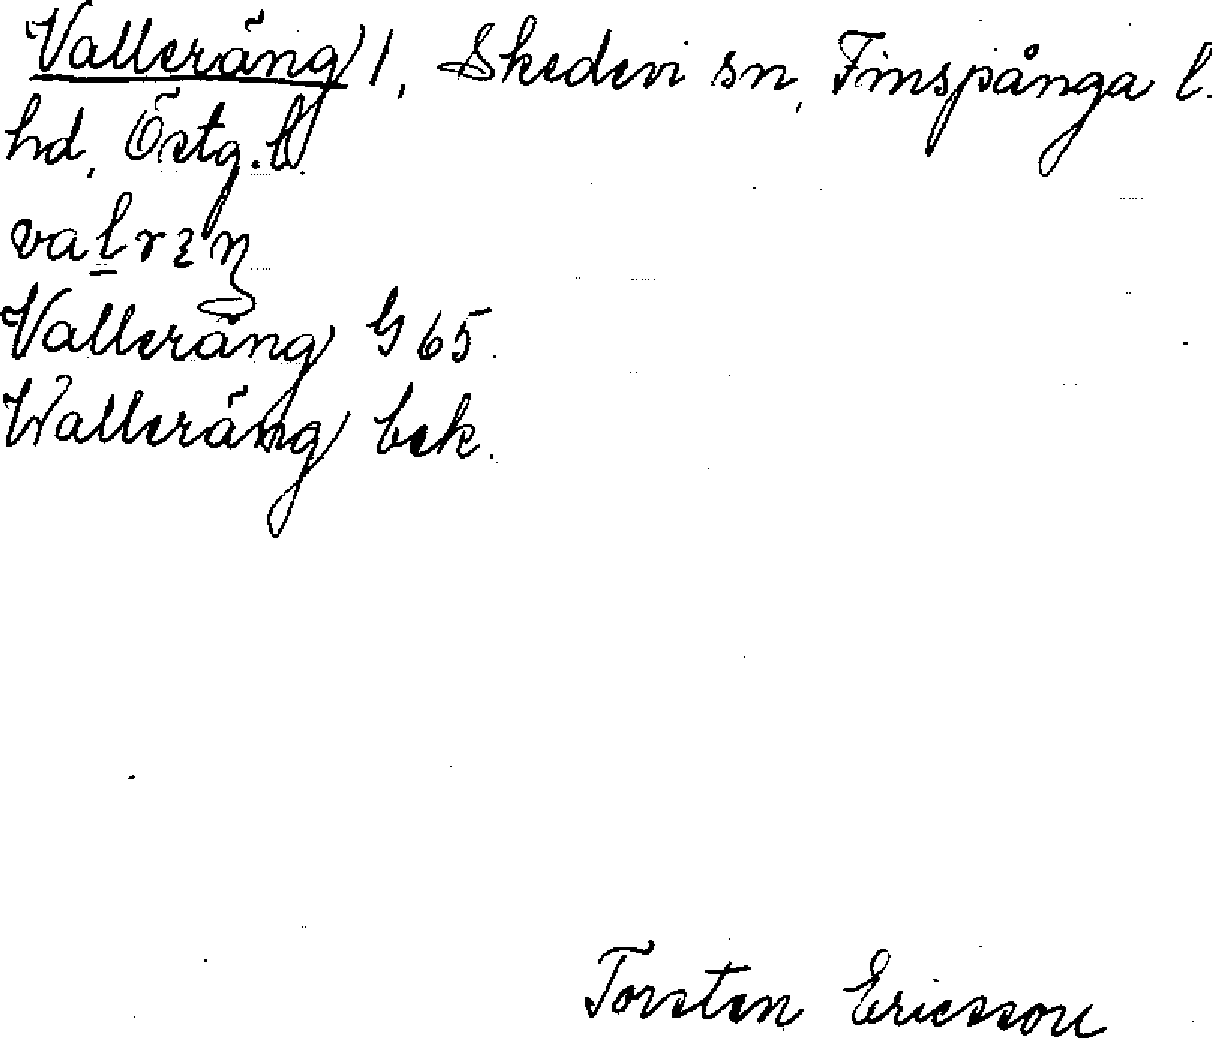 Valleräng 1, Skedevi sn, Finspånga l.
hd, Östg. l.
Valleräng G 65.
Walleräng bek.
Torsten Ericsson